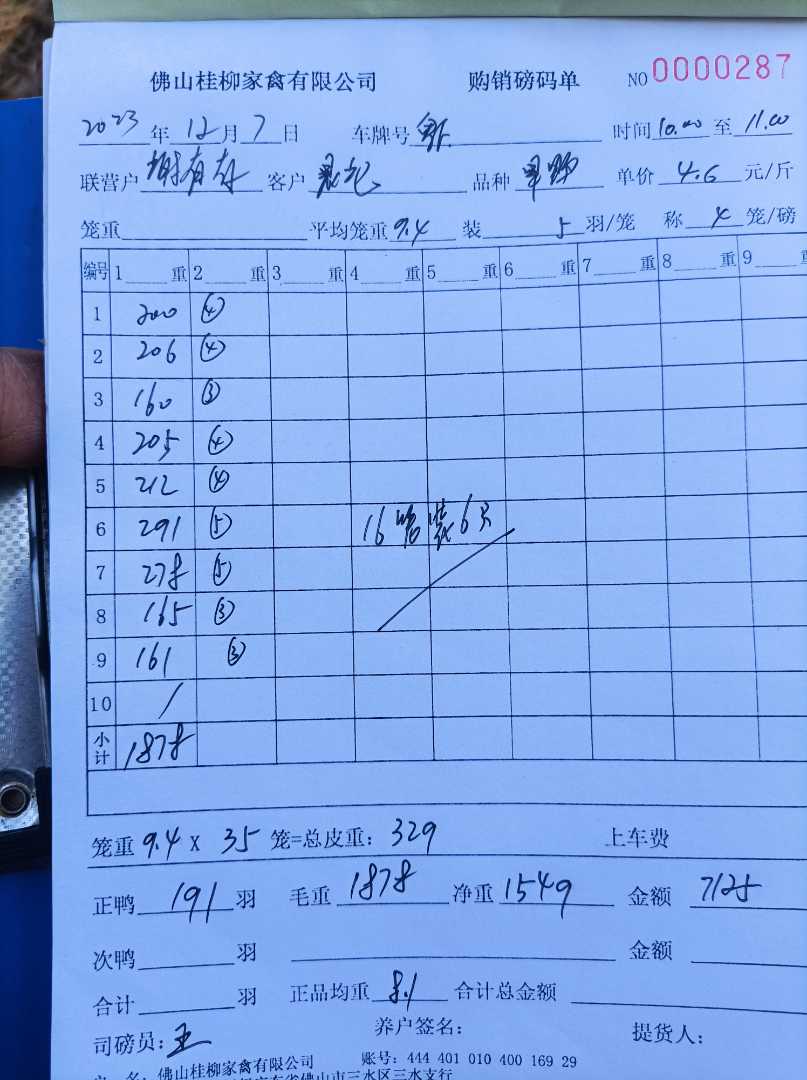 佛山桂柳家禽有限公司 购销磅码单 NO 0000287
2023年12月7日 车牌号 时间10.00至11.00
联营户 客户 品种 单价4.6元/斤
笼重 平均笼重9.4 装5羽/笼 称4笼/磅
编号 1 重 2 重 3 重 4 重 5 重 6 重 7 重 8 重 9 重
1 200 ④
2 206 ④
3 160 ③
4 205 ④
5 212 ④
6 291 ⑤ 16笼装6只
7 278 ⑤
8 165 ③
9 161 ③
10 /
小计 1878
笼重9.4X35笼=总皮重:329 上车费
正鸭191羽 毛重1878 净重1549 金额7125
次鸭 羽 金额
合计 羽 正品均重8.1 合计总金额
司磅员:王 养户签名: 提货人:
户 名:佛山桂柳家禽有限公司 账号:444 401 010 400 169 29
佛山市三水区三水支行